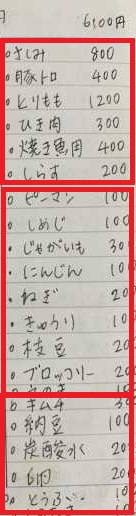 円 6,100円
・さしみ 800
・豚トロ 400
・とりもも 1200
・ひき肉 300
・焼き魚用 400
・しらす 200
・ピーマン 100
・しめじ 100
・じゃがいも 30
・にんじん 10
・ねぎ 20
・きゅうり 10
・枝豆 20
・ブロッコリー 20
・キムチ 30
・納豆 100
・炭酸水 20
・卵 20
・とうふ 10